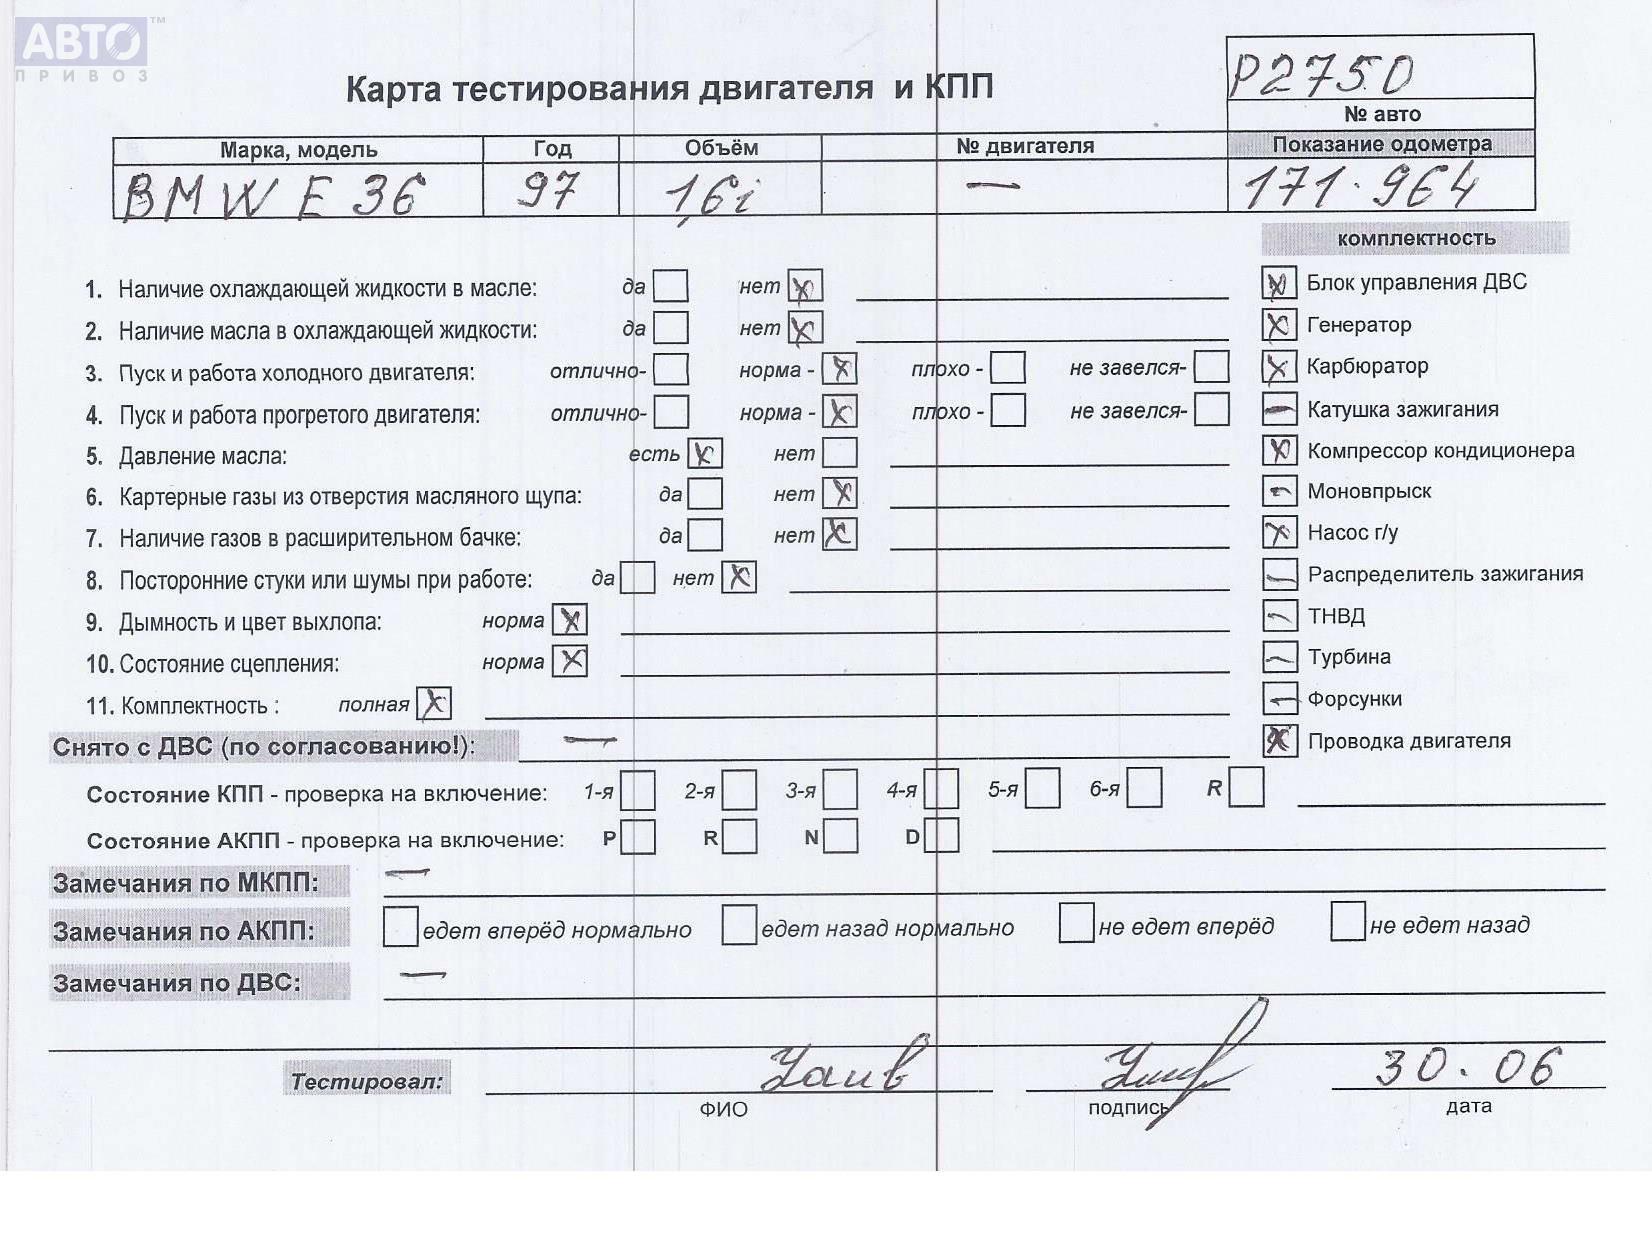 АВТО™
ПРИВОЗ
Карта тестирования двигателя и КПП
P2750
№ авто
Марка, модель Год Объём № двигателя Показание одометра
BMW E 36 97 1,6i — 171.964
комплектность
1. Наличие охлаждающей жидкости в масле: да нет x
2. Наличие масла в охлаждающей жидкости: да нет x
3. Пуск и работа холодного двигателя: отлично- норма - x плохо - не завелся-
4. Пуск и работа прогретого двигателя: отлично- норма - x плохо - не завелся-
5. Давление масла: есть x нет
6. Картерные газы из отверстия масляного щупа: да нет x
7. Наличие газов в расширительном бачке: да нет x
8. Посторонние стуки или шумы при работе: да нет x
9. Дымность и цвет выхлопа: норма x
10. Состояние сцепления: норма x
11. Комплектность : полная x
x Блок управления ДВС
x Генератор
x Карбюратор
— Катушка зажигания
x Компрессор кондиционера
— Моновпрыск
x Насос г/у
— Распределитель зажигания
— ТНВД
— Турбина
— Форсунки
x Проводка двигателя
Снято с ДВС (по согласованию!): —
Состояние КПП - проверка на включение: 1-я 2-я 3-я 4-я 5-я 6-я R
Состояние АКПП - проверка на включение: P R N D
Замечания по МКПП: —
Замечания по АКПП: едет вперёд нормально едет назад нормально не едет вперёд не едет назад
Замечания по ДВС: —
Тестировал: 30.06
ФИО подпись дата